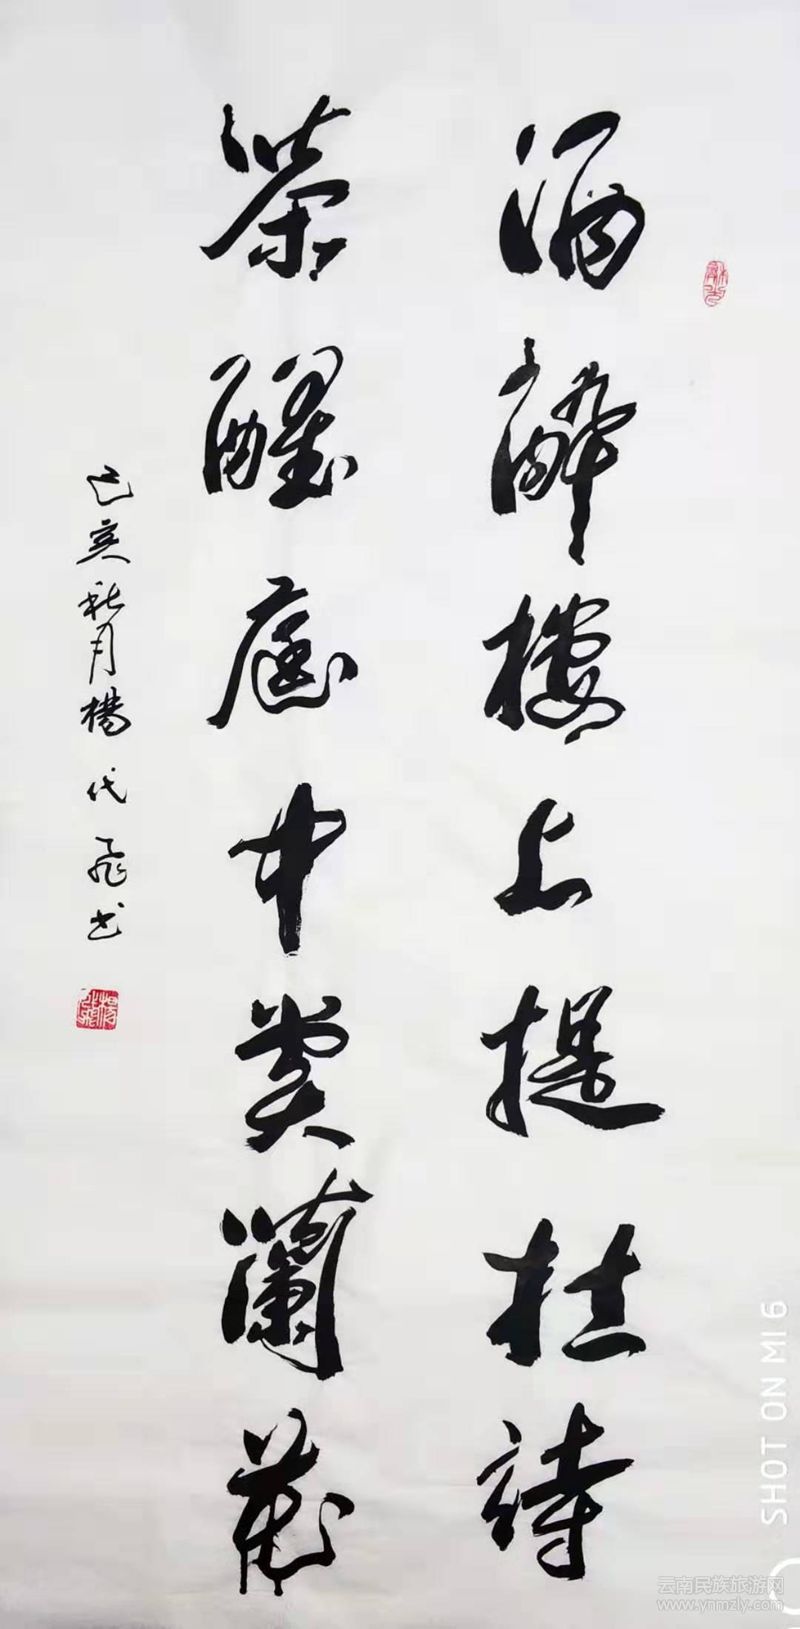 酒醉樓上提杜詩
茶醒庭中賞蘭花
己亥秋月楊代飛书
SHOT ON MI 6
云南民族旅游网
www.ynmzly.com